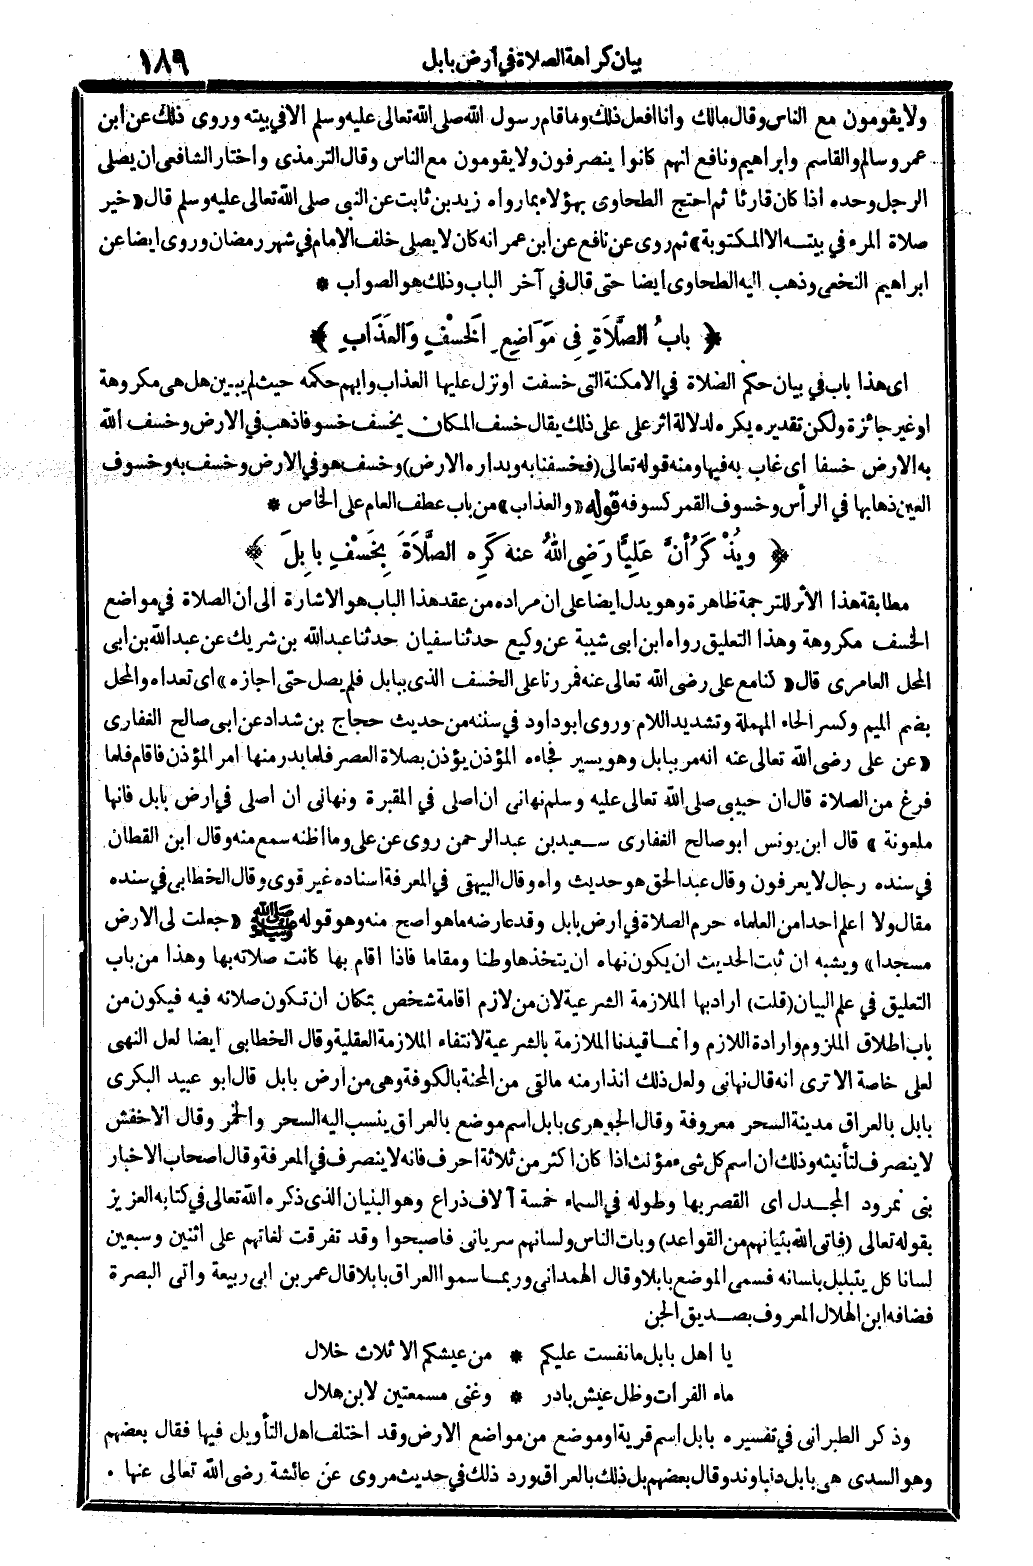 بيان كراهة الصلاة في أرض بابل ١٨٩
ولا يقومون مع الناس وقال مالك وانا افعل ذلك وما قام رسول الله صلى الله تعالى عليه وسلم الا في بيته وروى ذلك عن ابن
عمر وسالم والقاسم وابراهيم ونافع انهم كانوا ينصرفون ولا يقومون مع الناس وقال الترمذى واختار الشافعى ان يصلى
الرجل وحده اذا كان قارئا ثم احتج الطحاوى بهؤلاء بما رواه زيد بن ثابت عن النبى صلى الله تعالى عليه وسلم قال « خير
صلاة المرء في بيته الا المكتوبة » ثم روى عن نافع عن ابن عمر انه كان لا يصلى خلف الامام في شهر رمضان وروى ايضا عن
ابراهيم النخعى وذهب اليه الطحاوى ايضا حتى قال في آخر الباب وذلك هو الصواب *
﴿ بابُ الصَّلَاةِ فِى مَوَاضِعِ الْخَسْفِ وَالْعَذَابِ ﴾
اى هذا باب في بيان حكم الصلاة في الامكنة التى خسفت او نزل عليها العذاب وابهم حكمه حيث لم يبين هل هى مكروهة
او غير جائزة ولكن تقديره يكره لدلالة اثر على على ذلك يقال خسف المكان يخسف خسوفا ذهب في الارض وخسف الله
به الارض خسفا اى غاب به فيها ومنه قوله تعالى (فخسفنا به وبداره الارض) وخسف هو في الارض وخسف به وخسوف
العين ذهابها في الرأس وخسوف القمر كسوفه قوله « والعذاب » من باب عطف العام على الخاص *
﴿ ويُذْكَرُ أنَّ عَلِيًّا رَضِى اللهُ عنه كَرِه الصَّلَاةَ بِخَسْفِ بابِلَ ﴾
مطابقة هذا الأثر للترجمة ظاهرة وهو يدل ايضا على ان مراده من عقد هذا الباب هو الاشارة الى ان الصلاة في مواضع
الخسف مكروهة وهذا التعليق رواه ابن ابى شيبة عن وكيع حدثنا سفيان حدثنا عبد الله بن شريك عن عبد الله بن ابى
المحل العامرى قال « كنا مع على رضى الله تعالى عنه فمررنا على الخسف الذى ببابل فلم يصل حتى اجازه » اى تعداه والمحل
بضم الميم وكسر الحاء المهملة وتشديد اللام وروى ابو داود في سننه من حديث حجاج بن شداد عن ابى صالح الغفارى
« عن على رضى الله تعالى عنه انه مر ببابل وهو يسير فجاءه المؤذن يؤذن بصلاة العصر فلما بدر منها امر المؤذن فاقام فلما
فرغ من الصلاة قال ان حبيبى صلى الله تعالى عليه وسلم نهانى ان اصلى في المقبرة ونهانى ان اصلى في ارض بابل فانها
ملعونة » قال ابن يونس ابو صالح الغفارى سعيد بن عبد الرحمن روى عن على وما اظنه سمع منه وقال ابن القطان
في سنده رجال لا يعرفون وقال عبد الحق هو حديث واه وقال البيهقى في المعرفة اسناده غير قوى وقال الخطابى في سنده
مقال ولا اعلم احدا من العلماء حرم الصلاة في ارض بابل وقد عارضه ما هو اصح منه وهو قوله ﷺ « جعلت لى الارض
مسجدا » ويشبه ان ثبت الحديث ان يكون نهاه ان يتخذها وطنا ومقاما فاذا اقام بها كانت صلاته بها وهذا من باب
التعليق في علم البيان (قلت) اراد بها الملازمة الشرعية لان من لازم اقامة شخص بمكان ان تكون صلاته فيه فيكون من
باب اطلاق الملزوم وارادة اللازم وانما قيدنا الملازمة بالشرعية لانتفاء الملازمة العقلية وقال الخطابى ايضا لعل النهى
لعلى خاصة الا ترى انه قال نهانى ولعل ذلك انذار منه مالقى من المحنة بالكوفة وهى من ارض بابل قال ابو عبيد البكرى
بابل بالعراق مدينة السحر معروفة وقال الجوهرى بابل اسم موضع بالعراق ينسب اليه السحر والخمر وقال الاخفش
لا ينصرف لتأنيثه وذلك ان اسم كل شىء مؤنث اذا كان اكثر من ثلاثة احرف فانه لا ينصرف في المعرفة وقال اصحاب الاخبار
بنى نمرود المجدل اى القصر بها وطوله في السماء خمسة آلاف ذراع وهو البنيان الذى ذكره الله تعالى في كتابه العزيز
بقوله تعالى (فاتى الله بنيانهم من القواعد) وبات الناس ولسانهم سريانى فاصبحوا وقد تفرقت لغاتهم على اثنين وسبعين
لسانا كل يتبلبل بلسانه فسمى الموضع بابلا وقال الهمدانى وربما سموا العراق بابلا قال عمر بن ابى ربيعة واتى البصرة
فضافه ابن الهلال المعروف بصديق الجن
يا اهل بابل ما نفست عليكم * من عيشكم الا ثلاث خلال
ماء الفرات وظل عيش بادر * وغنى مسمعتين لابن هلال
وذكر الطبرانى في تفسيره بابل اسم قرية او موضع من مواضع الارض وقد اختلف اهل التأويل فيها فقال بعضهم
وهو السدى هى بابل دنباوند وقال بعضهم بل ذلك بالعراق ورد ذلك في حديث مروى عن عائشة رضى الله تعالى عنها •